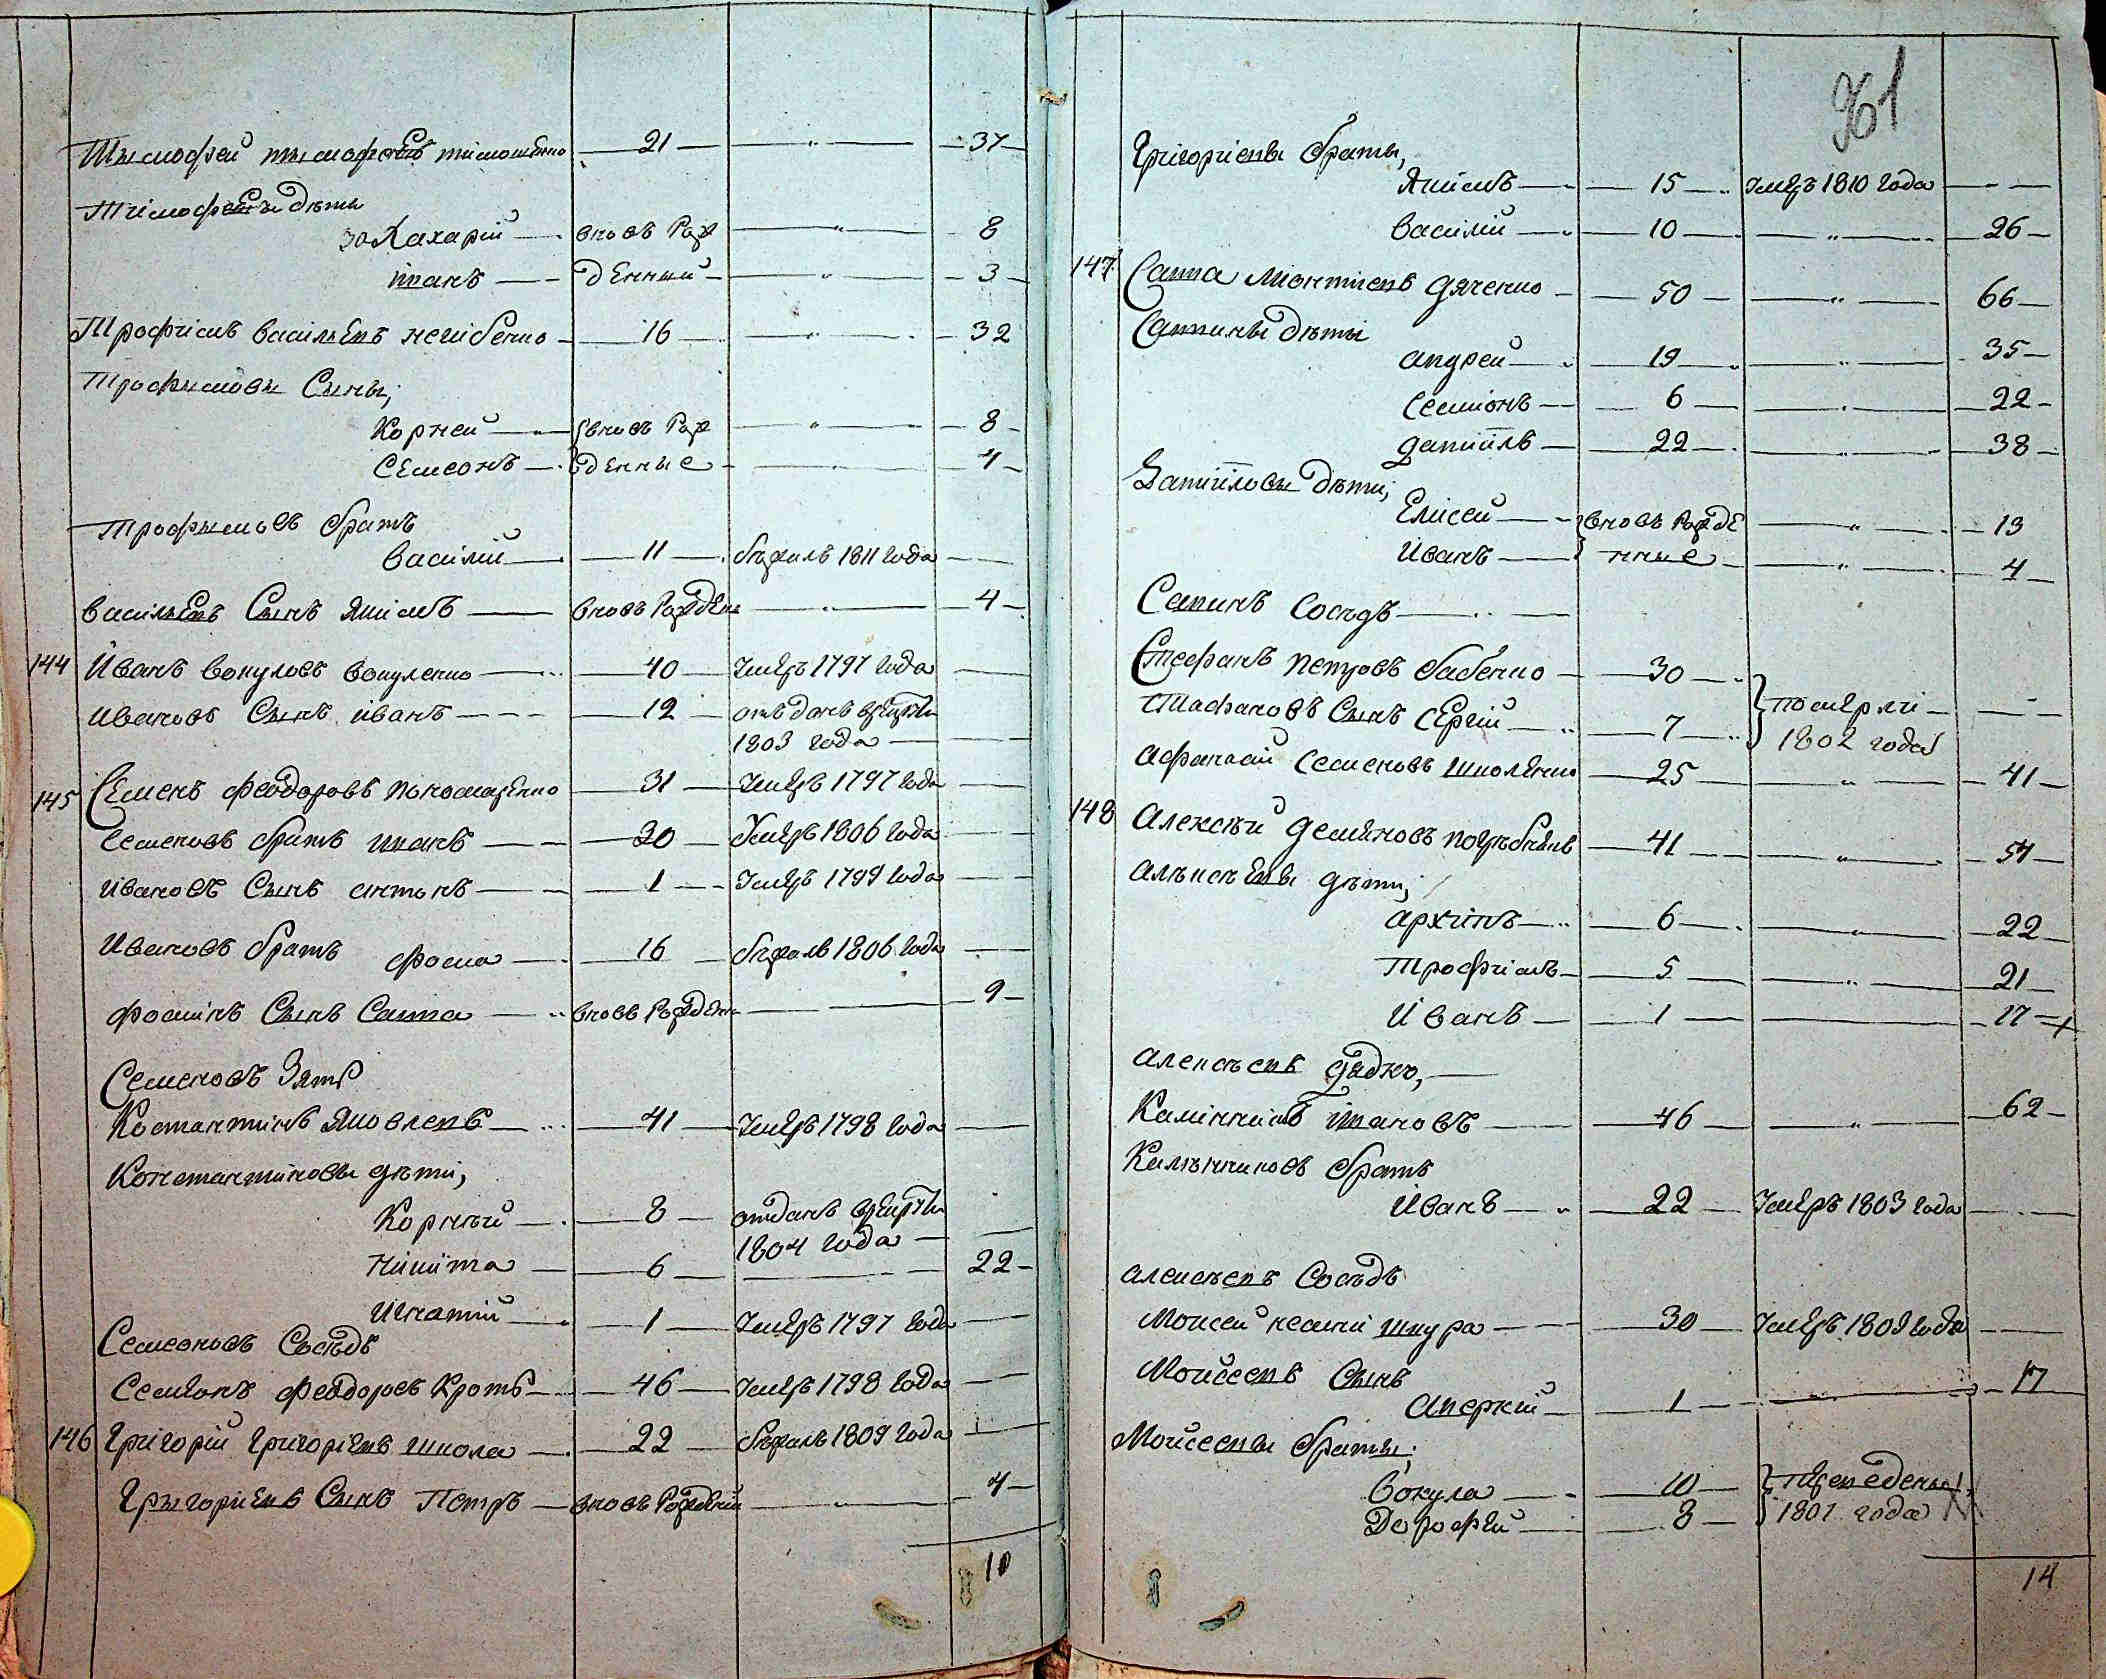 Тымофей тымофеевъ тимошенко — 21 — „ — 37
Тимофеевы дѣти
Захарий — вновь рож — „ — 8
иванъ — денный — „ — 3
Трофимъ васильевъ негибенко — 16 — „ — 32
Трофымовы Сыны,
Корней — вновь рож — „ — 8
Семеонъ — денные — „ — 4
Трофымовъ братъ
василий — 11 — бѣжалъ 1811 года —
васильевъ Сынъ якимъ — вновь рожден — „ — 4
144 Иванъ вокуловъ вокуленко — 40 — умеръ 1797 года —
ивановъ Сынъ иванъ — 12 — отъданъ врекруты
1803 года —
145 Семенъ феодоровъ пономаренко — 31 — умеръ 1797 года —
Семеновъ братъ иванъ — 30 — умеръ 1806 года —
ивановъ Сынъ антонъ — 1 — умеръ 1799 года —
Ивановъ братъ фома — 16 — бѣжалъ 1806 года —
фоминъ Сынъ Савва — вновь рожден — 9
Семеновъ Зять
Костантинъ яковлевъ — 41 — умеръ 1798 года —
Константиновы дѣти,
Корнѣй — 8 — отданъ врекруты
1804 года —
Никита — 6 — 22
Игнатий — 1 — умеръ 1797 года —
Семеоновъ Сосѣдъ
Семионъ феодоровъ Кротъ — 46 — умеръ 1798 года —
146 Григорий Григориевъ школа — 22 — бѣжалъ 1809 года —
Грыгориевъ Сынъ Петръ — вновь рожденый — „ — 4
10
961
Григориевы браты,
якимъ — 15 — умеръ 1810 года —
василий — 10 — „ — 26
147 Савва Леонтиевъ дяченко — 50 — „ — 66
Саввины дѣти
андрей — 19 — „ — 35
Семионъ — 6 — „ — 22
даниилъ — 22 — „ — 38
Данииловы дѣти,
Елисей — вновь рожде — „ — 13
Иванъ — нные — „ — 4
Савинъ Сосѣдъ —
Стефанъ петровъ бабенко — 30 —
Стефановъ Сынъ Сергий — 7 — померли
1802 года —
афанасий Семеновъ школенко — 25 — „ — 41
148 Алексѣй демяновъ погрѣбнякъ — 41 — „ — 57
алѣксѣевы дѣти,
архипъ — 6 — „ — 22
Трофимъ — 5 — „ — 21
Иванъ — 1 — 17
алексѣевъ дядко, —
Калинникъ ивановъ — 46 — „ — 62
Калѣнниковъ братъ
Иванъ — 22 — умеръ 1803 года —
алексѣевъ Сосѣдъ
Моисей шкура — 30 — умеръ 1809 года —
Мойсеевъ Сынъ
аверкий — 1 — 17
Мойсеевы браты,
Вокула — 10 — переведены
Дорофей — 8 — 1801 года
14